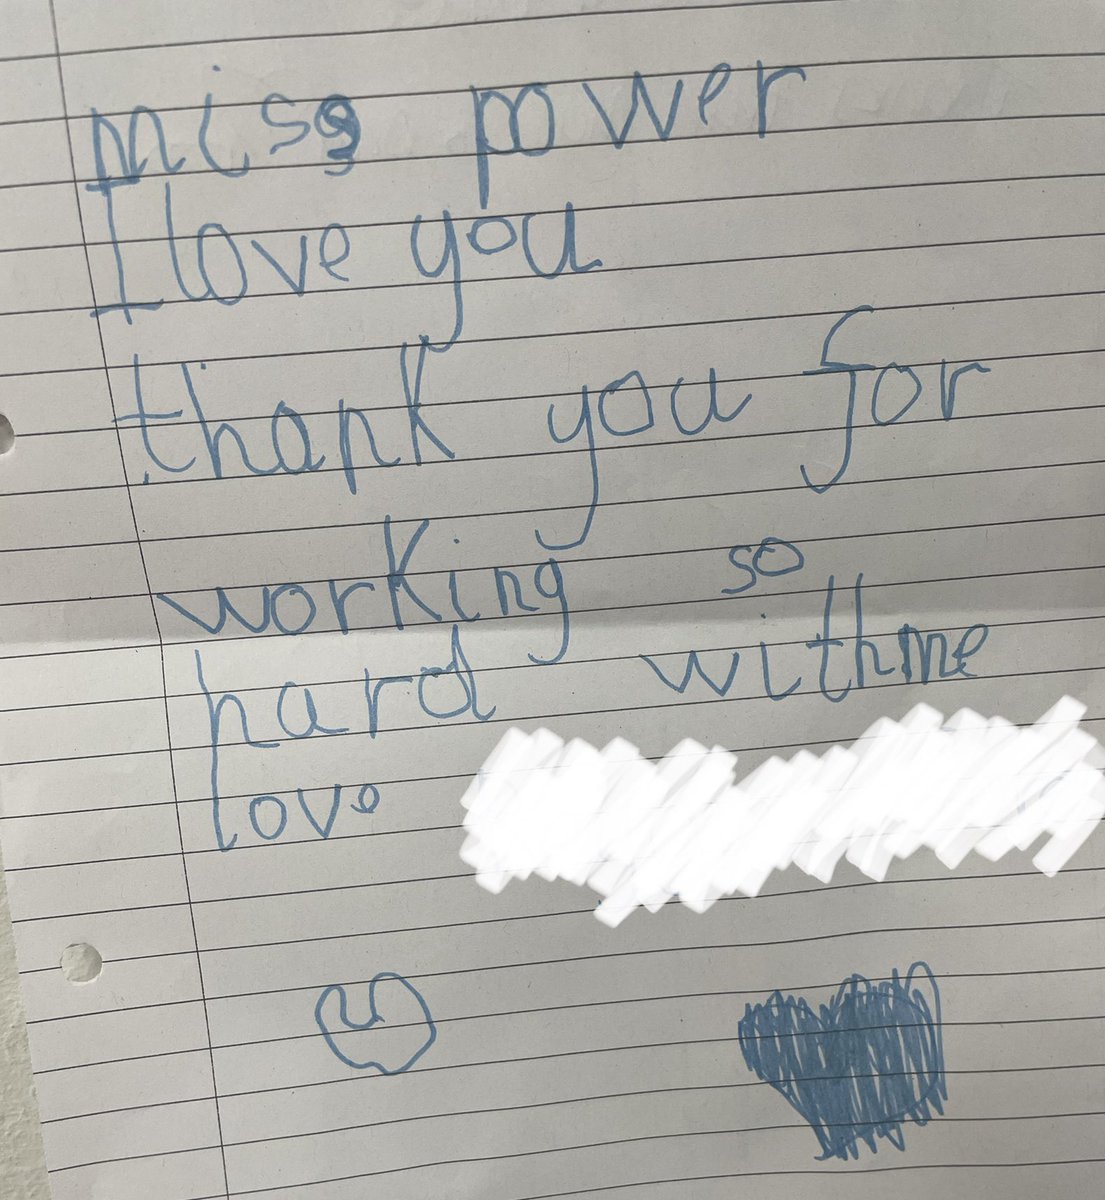 miss power
I love you
thank you for
working so
hard with me
love